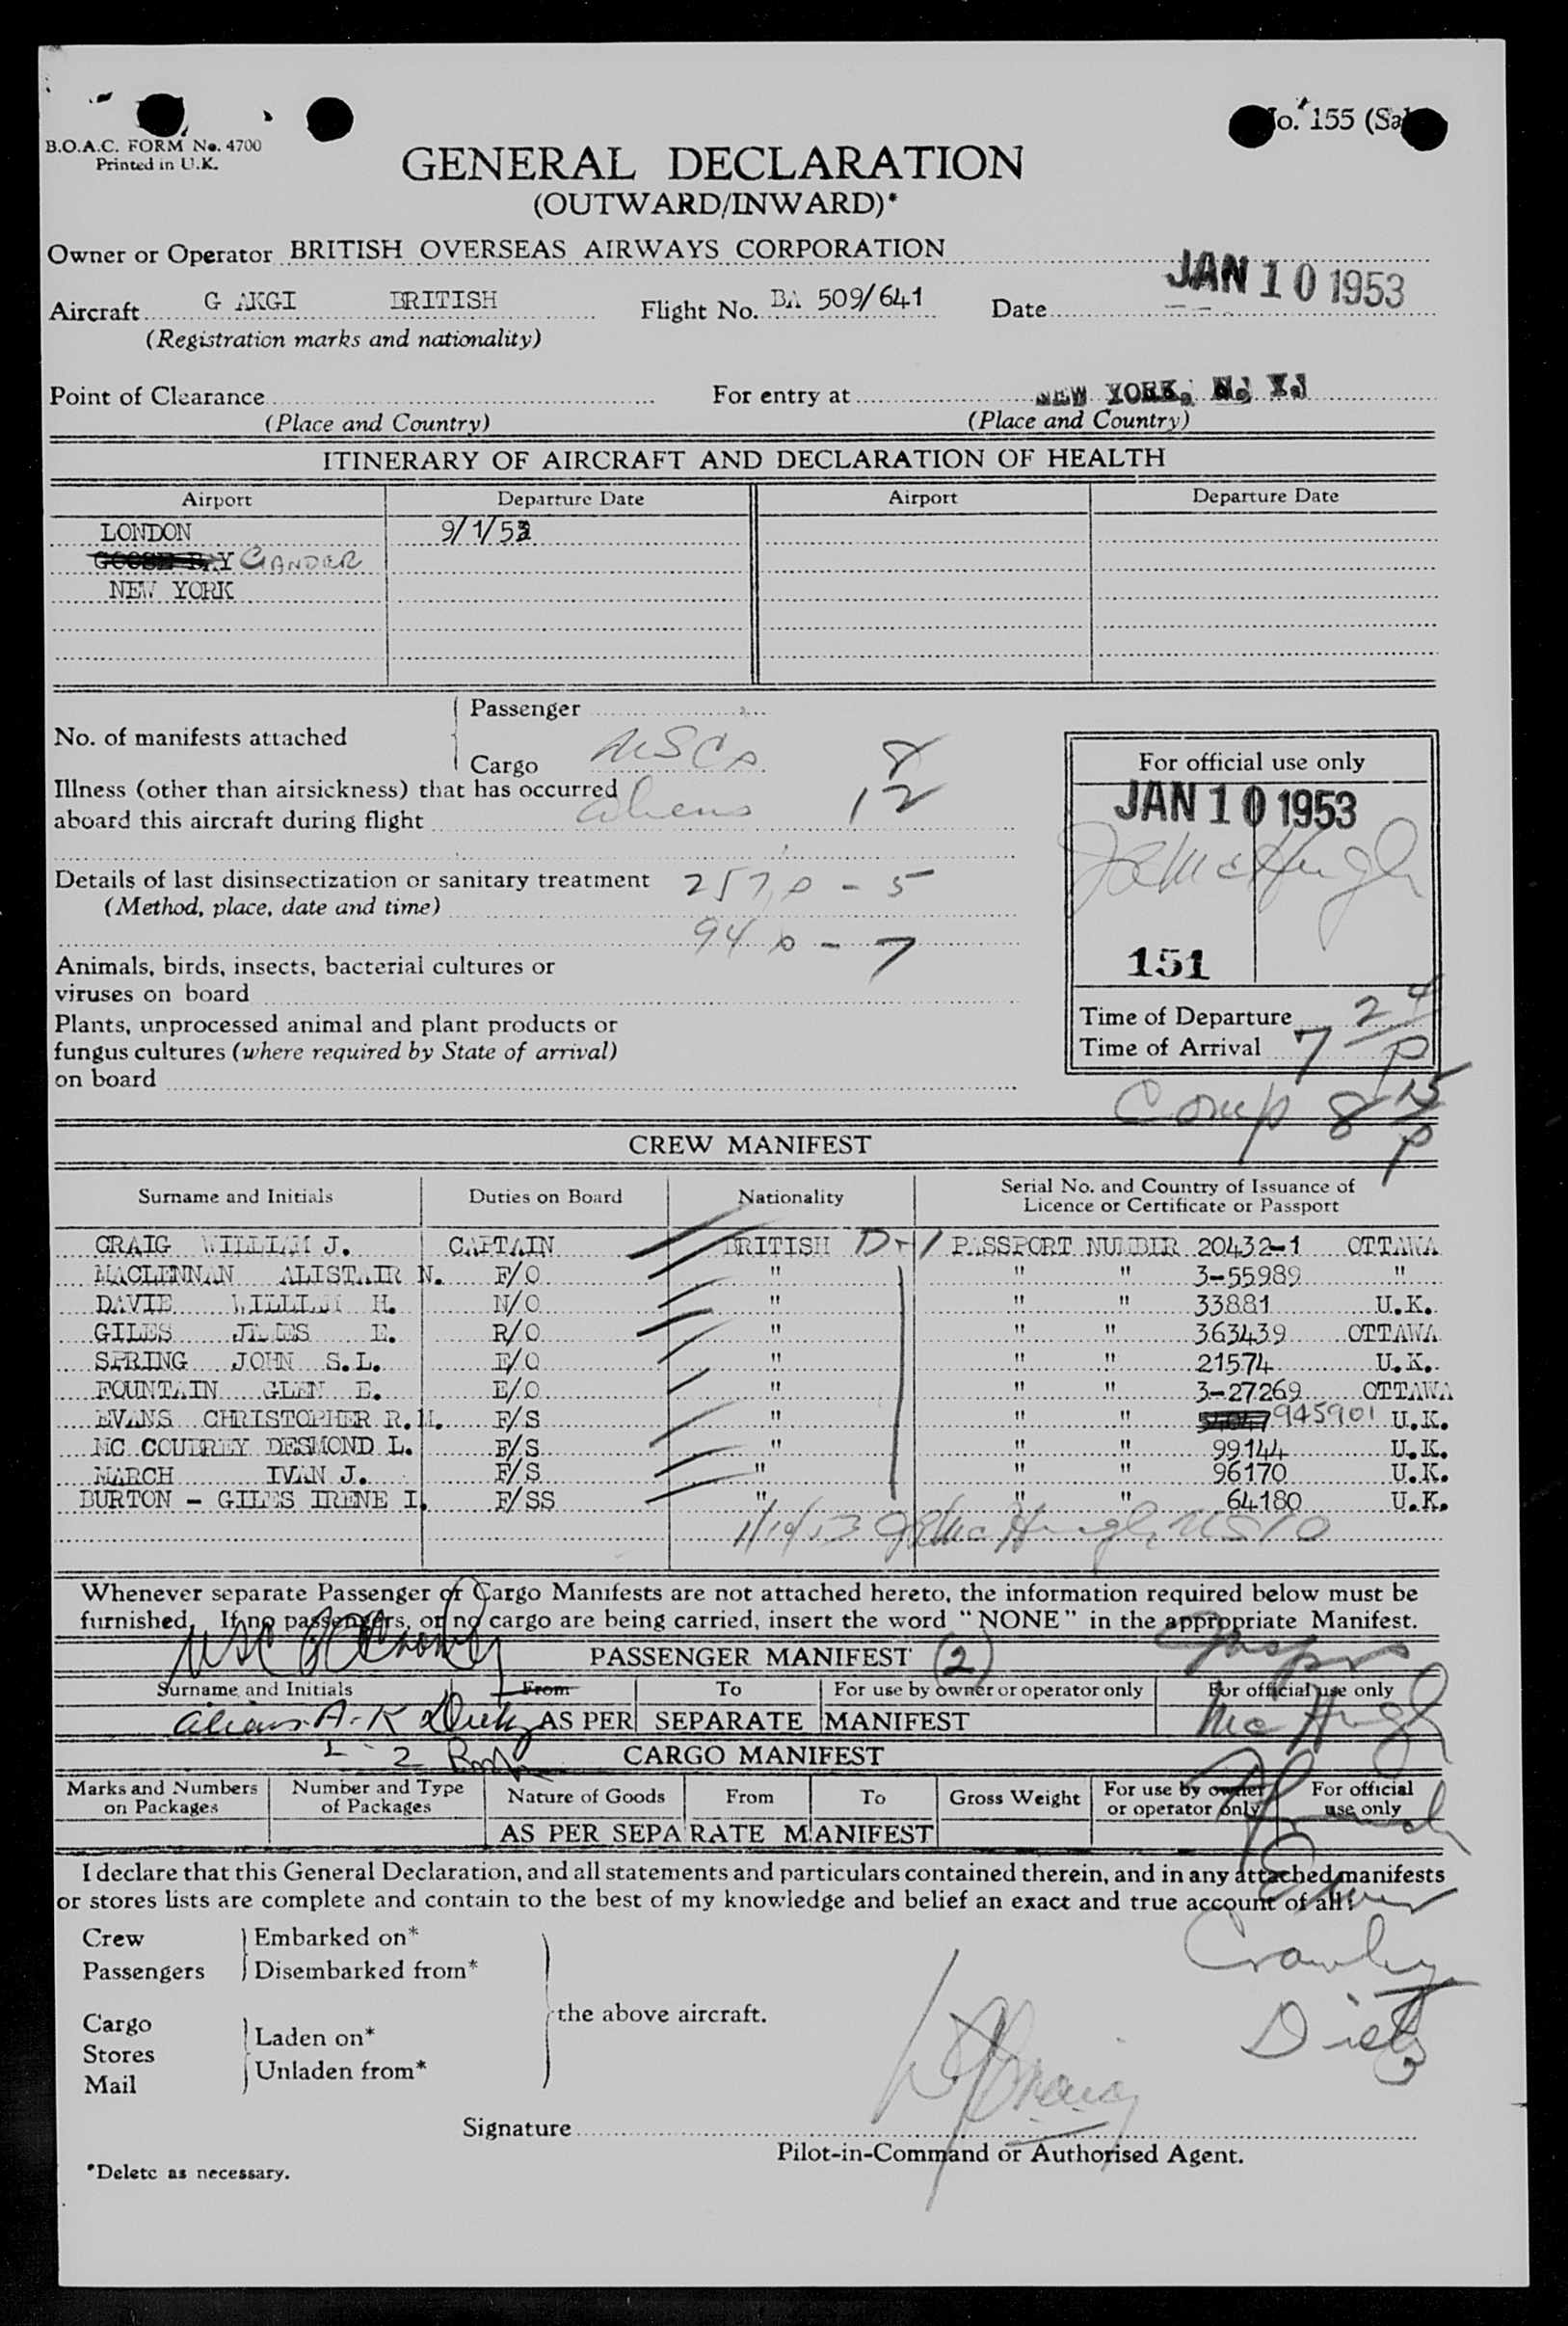 B.O.A.C. FORM No. 4700
Printed in U.K.
o. 155 (Sa
GENERAL DECLARATION
(OUTWARD/INWARD)*
Owner or Operator BRITISH OVERSEAS AIRWAYS CORPORATION
Aircraft G AKGI BRITISH Flight No. BA 509/641 Date JAN 10 1953
(Registration marks and nationality)
Point of Clearance For entry at NEW YORK, N. Y.
(Place and Country) (Place and Country)
ITINERARY OF AIRCRAFT AND DECLARATION OF HEALTH
Airport Departure Date Airport Departure Date
LONDON 9/1/53
GOOSE BAY GANDER
NEW YORK
No. of manifests attached
Passenger
Cargo USCs 8
Illness (other than airsickness) that has occurred
aboard this aircraft during flight aliens 12
For official use only
JAN 10 1953
JR McHugh
Details of last disinsectization or sanitary treatment 257 p - 5
(Method, place, date and time)
94 p - 7
151
Animals, birds, insects, bacterial cultures or
viruses on board
Plants, unprocessed animal and plant products or
fungus cultures (where required by State of arrival)
on board
Time of Departure
Time of Arrival 7 24 P
Comp 8 15 P
CREW MANIFEST
Surname and Initials Duties on Board Nationality Serial No. and Country of Issuance of
Licence or Certificate or Passport
CRAIG WILLIAM J. CAPTAIN BRITISH D-1 PASSPORT NUMBER 20432-1 OTTAWA
MACLENNAN ALISTAIR N. F/O " " " 3-55989 "
DAVIE WILLIAM H. N/O " " " 33881 U.K.
GILES JAMES E. R/O " " " 363439 OTTAWA
SPRING JOHN S.L. E/O " " " 21574 U.K.
FOUNTAIN GLEN E. E/O " " " 3-27269 OTTAWA
EVANS CHRISTOPHER R.M. F/S " " " 945901 U.K.
MC COUBREY DESMOND L. F/S " " " 99144 U.K.
MARCH IVAN J. F/S " " " 96170 U.K.
BURTON - GILES IRENE I. F/SS " " " 64180 U.K.
1/10/53 JR McHugh USIO
Whenever separate Passenger or Cargo Manifests are not attached hereto, the information required below must be
furnished. If no passengers, or no cargo are being carried, insert the word "NONE" in the appropriate Manifest.
USC Crowley
PASSENGER MANIFEST (2)
Surname and Initials From To For use by owner or operator only For official use only
aliens A. K Dietz AS PER SEPARATE MANIFEST McHugh
2
CARGO MANIFEST
Marks and Numbers
on Packages
Number and Type
of Packages
Nature of Goods From To Gross Weight
For use by owner
or operator only
For official
use only
AS PER SEPARATE MANIFEST
I declare that this General Declaration, and all statements and particulars contained therein, and in any attached manifests
or stores lists are complete and contain to the best of my knowledge and belief an exact and true account of all:
Crew
Passengers
Embarked on*
Disembarked from*
Crowley
Cargo
Stores
Mail
Laden on*
Unladen from*
the above aircraft.
Dietz
Signature WJ Craig
Pilot-in-Command or Authorised Agent.
*Delete as necessary.